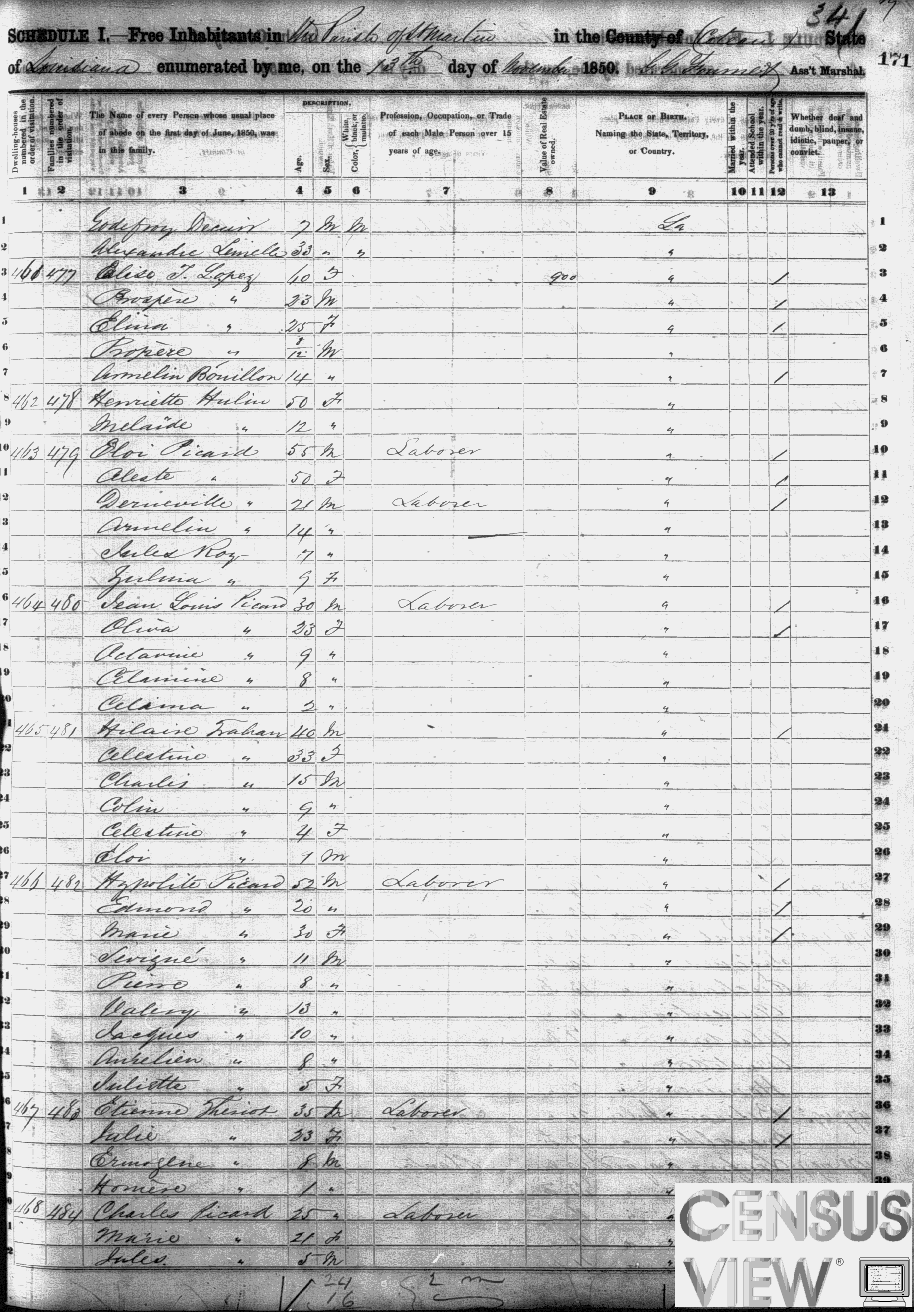 341
SCHEDULE I.—Free Inhabitants in the Parish of St Martin in the County of State
of Louisiana enumerated by me, on the 13th day of November 1850. Ass't Marshal. 171
DESCRIPTION.
Dwelling-houses numbered in the order of visitation. Families numbered in the order of visitation. The Name of every Person whose usual place of abode on the first day of June, 1850, was in this family. Age. Sex. White, black, or mulatto. Color, Profession, Occupation, or Trade of each Male Person over 15 years of age. Value of Real Estate owned. PLACE OF BIRTH. Naming the State, Territory, or Country. Married within the year. Attended School within the year. Persons over 20 y'rs of age who cannot read & write. Whether deaf and dumb, blind, insane, idiotic, pauper, or convict.
1 2 3 4 5 6 7 8 9 10 11 12 13
1 Godefroy Decuir 7 M M La 1
2 Alexandre Lemelle 33 " " " 2
3 461 477 Elise T. Lopez 40 F 900 " / 3
4 Prospère " 23 M " / 4
5 Elina " 25 F " / 5
6 Propère " 8/12 M " 6
7 Armelin Bouillon 14 " " / 7
8 462 478 Henriette Hulin 50 F " 8
9 Melaïde " 12 " " 9
10 463 479 Eloi Picard 55 M Laborer " / 10
11 Celeste " 50 F " / 11
12 Derneville " 21 M Laborer " / 12
13 Armelin " 14 " " 13
14 Jules Roy 7 " " 14
15 Zulma " 9 F " 15
16 464 480 Jean Louis Picard 30 M Laborer " / 16
17 Oliva " 23 F " / 17
18 Octavine " 9 " " 18
19 Celamine " 8 " " 19
20 Celima " 2 " " 20
21 465 481 Hilaire Trahan 40 M " / 21
22 Celestine " 33 F " 22
23 Charles " 15 M " 23
24 Colin " 9 " " 24
25 Celestine " 4 F " 25
26 Eloi " 1 M " 26
27 466 482 Hypolite Picard 52 M Laborer " / 27
28 Edmond " 20 " " / 28
29 Marie " 30 F " / 29
30 Sevigné " 11 M " 30
31 Pierre " 8 " " 31
32 Valery " 13 " " 32
33 Jacques " 10 " " 33
34 Aurelien " 8 " " 34
35 Juliette " 5 F " 35
36 467 483 Etienne Theriot 35 M Laborer " / 36
37 Julie " 23 F " / 37
38 Ermogène " 8 M " 38
39 Homère " 1 " " 39
468 484 Charles Picard 25 " Laborer "
Marie " 21 F "
Jules 5 M "
24
16
2 m
CENSUS
VIEW®